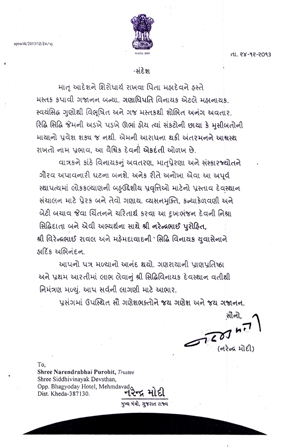 તા. ૨૪-૧૨-૨૦૧૩
-સંદેશ
માતૃ આદેશને શિરોધાર્ય રાખવા પિતા મહાદેવને હસ્તે
મસ્તક કપાવી ગજાનન બન્યા. ગણાધિપતિ વિનાયક એટલે મહાનાયક.
સ્વયંસિદ્ધ ગુણોથી વિભૂષિત અને ગજ મસ્તકથી શોભિત અનંગ અવતાર.
રિદ્ધિ સિદ્ધિ જેમની અડખે પડખે ઊભાં હોય ત્યાં સંકટોની છાયા કે મુસીબતોની
માયાનો પ્રવેશ શક્ય જ નથી. એમની આરાધના થકી અંતરમનને આશ્વસ્થ
રાખતો નામ પ્રભાવ, આ વૈશ્વિક દેવની એકદંતી ઓળખ છે.
વાત્રકને કાંઠે વિનાયકનું અવતરણ, માતૃપ્રેરણા અને સંસ્કારજ્યોતને
ગૌરવ અપાવનારી ઘટના બનશે. અનેક રીતે અનોખા એવા આ અપૂર્વ
સ્થાપત્યમાં લોકકલ્યાણની બહુઉદ્દેશીય પ્રવૃત્તિઓ માટેનો પ્રસ્તાવ દેવસ્થાન
સંચાલન માટે પ્રેરક બને તેવો ગણાય. વ્યસનમુક્તિ, કન્યાકેળવણી અને
બેટી બચાવ જેવા ચિંતનને ચરિતાર્થ કરવા આ દુઃખભંજન દેવની નિશ્રા
સિદ્ધિદાતા બને એવી અભ્યર્થના સાથે શ્રી નરેન્દ્રભાઈ પુરોહિત,
શ્રી વિરેન્દ્રભાઈ રાવલ અને મહેમદાવાદની સિદ્ધિ વિનાયક યુવાસેનાને
હાર્દિક અભિનંદન.
આપનો પત્ર મળ્યાનો આનંદ થયો. ગણરાયાની પ્રાણપ્રતિષ્ઠા
અને પ્રથમ આરતીમાં લાભ લેવાનું શ્રી સિદ્ધિવિનાયક દેવસ્થાન વતીથી
નિમંત્રણ મળ્યું. આપ સર્વની લાગણી માટે આભાર.
પ્રસંગમાં ઉપસ્થિત સૌ ગણેશભક્તોને જય ગણેશ અને જય ગજાનન.
સૌનો,
(નરેન્દ્ર મોદી)
To,
Shree Narendrabhai Purohit, Trustee
Shree Siddhivinayak Devsthan,
Opp. Bhagyoday Hotel, Mehmdavad
Dist. Kheda-387130.
નરેન્દ્ર મોદી
મુખ્ય મંત્રી, ગુજરાત રાજ્ય